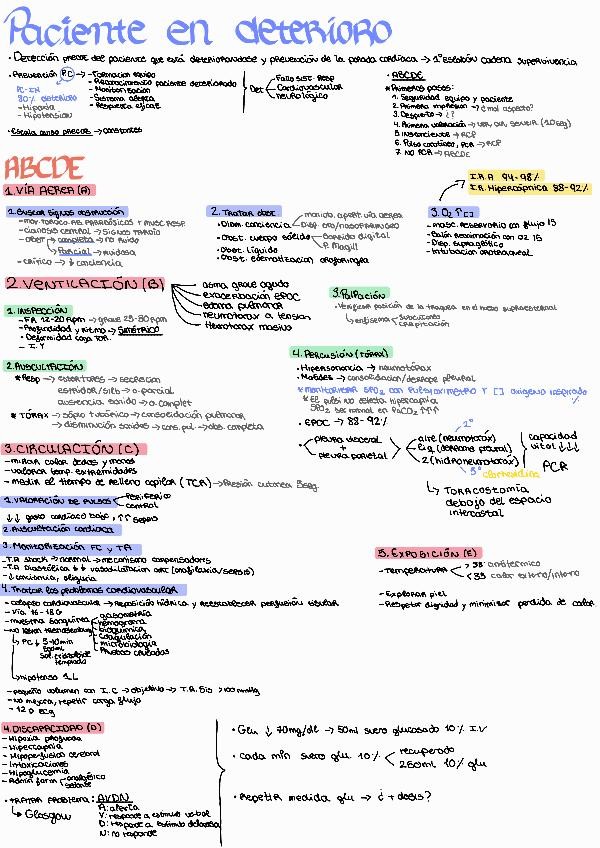 Paciente en deterioro
· Detección precoz del paciente que está deteriorandose y prevención de la parada cardíaca → 1º Eslabón cadena supervivencia
· Prevención PC → - Formacion equipo
- Reconocimiento paciente deteriorado
- Monitorización
- Sistema alerta
- Respuesta eficaz
PC-IH
80% deterioro
- Hipoxia
- Hipotension
Det
- Fallo sist. Resp
- Cardiovascular
- neurológico
· Escala aviso precoz → constantes
· ABCDE
* Primeros pasos:
1. Seguridad equipo y paciente
2. Primera impresion → ¿mal aspecto?
3. Despierto → ¿?
4. Primera valoración → ver, oir, sentir (10seg)
5. Inconsciente → RCP
6. Pulso carotideo, PCR → RCP
7. NO PCR → ABCDE
ABCDE
1. VÍA AEREA (A)
I.R.A 94-98%
I.R. Hipercápnica 88-92%
1. Buscar signos obstrucción
- Mov. toracoab. paradójicos + musc. resp.
- Cianosis central → signos tardío
- Obstr → completa → no ruido
Parcial → ruidosa
- Crítico → ↓ conciencia
2. Tratar obst
· Dism. conciencia
maniob. apert. vía aerea
Disp. oro/nasofaringeo
· Obst. cuerpo sólido
Barrido digital
P. Magill
· Obst. líquido
· Obst. edematización orofaringea
3. O2 ↑[]
- masc. reservorio con flujo 15
- Balón reanimación con O2 15
- Disp. supraglótico
- Intubación orotraqueal
2. VENTILACIÓN (B)
asma grave agudo
exacerbación EPOC
edema pulmonar
neumotorax a tensión
Hemotorax masivo
1. INSPECCIÓN
- FR 12-20 rpm → grave 25-30 rpm
- Profundidad y ritmo → simétrico
- Deformidad caja tor.
- I.Y
3. Palpación
· Verificar posición de la traquea en el hueco supraesternal
→ enfisema
subcutaneo
crepitación
2. Auscultación
* Resp → estertores → secreción
estridor/sib → o. parcial
ausencia sonido → o. complet
* TÓRAX → soplo tubárico → consolidación pulmonar
→ disminución sonidos → cons. pul → obs. completa
4. Percusión (Tórax)
· Hipersonancia → neumotórax
· Matidez → consolidación/derrape pleural
* Monitorizar SPO2 con pulsioximetro y [] oxigeno inspirado %
* El pulsi no detecta hipercapnia
SPO2 ser normal en PaCO2 ↑↑↑
· EPOC → 88-92%
· pleura visceral
+
pleura parietal
2º
aire (neumotorax)
liq. (derrame pleural)
2 (hidroneumotorax)
capacidad
vital ↓↓↓
PCR
↳ Toracostomía
debajo del espacio
intercostal
3. CIRCULACIÓN (C)
- mirar color dedos y manos
- valorar temp. extremidades
- medir el tiempo de relleno capilar (TCR) → Presión cutanea 5seg.
1. VALORACIÓN DE PULSOS
Periférico
central
↓↓ gasto cardíaco bajo, ↑↑ sepsis
2. Auscultación cardiaca
3. Monitorización FC y TA
- TA shock → normal → mecanismo compensadores
- TA Diastólica ↓↓ vasodilatación art. (anafilaxia/sepsis)
- ↓ conciencia, oliguria
4. Tratar los problemas cardiovascular
- colapso cardiovascular → reposición hídrica y reestablecer perfusión tisular
- Vía. 16-18 G
- muestra sanguinea
gasometria
hemograma
bioquimica
coagulación
microbiologia
Pruebas cruzadas
↳ PC ↓ 5-10min
Sol. cristaloide
templado
↳ hipotenso 1L
- pequeño volumen con I.C → objetivo → T.A. Sis > 100 mmHg
- No mejora, repetir carga flujo
- 12 D ECG
5. EXPOSICIÓN (E)
- Temperatura
> 38 antitérmico
< 35 calor externo/interno
- Explorar piel
- Respetar dignidad y minimizar perdida de calor
4. DISCAPACIDAD (D)
- Hipoxia profunda
- Hipercapnia
- Hipoperfusión cerebral
- Intoxicaciones
- Hipoglucemia
- Admin farm
analgésico
sedante
· TRATAR PROBLEMA: AVDN
↳ Glasgow
A: alerta
V: responde a estimulo verbal
D: responde a estimulo doloroso
N: no responde
· Glu ↓ 70mg/dl → 50ml suero glucosado 10% I.V
· Cada min suero glu 10%
recuperado
250ml 10% glu
· Repetir medida glu → ¿ + dosis?